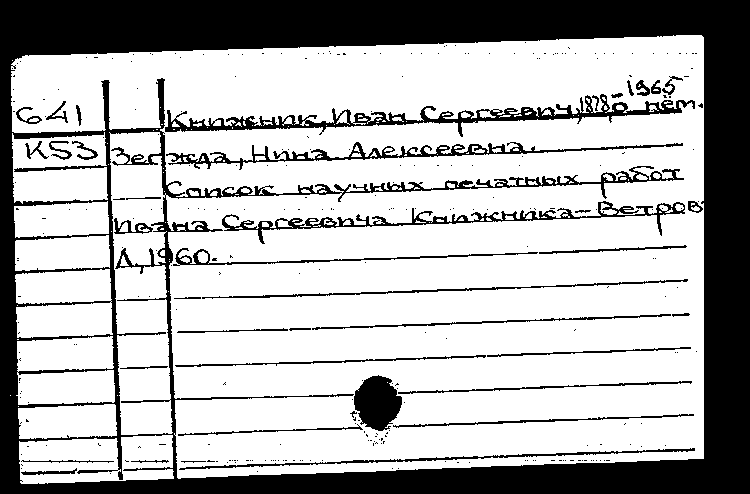 1965
641 Книжник, Иван Сергеевич, 1878-, о нём.
К53 Зегжда, Нина Алексеевна.
Список научных печатных работ
Ивана Сергеевича Книжника-Ветров
Л., 1960.